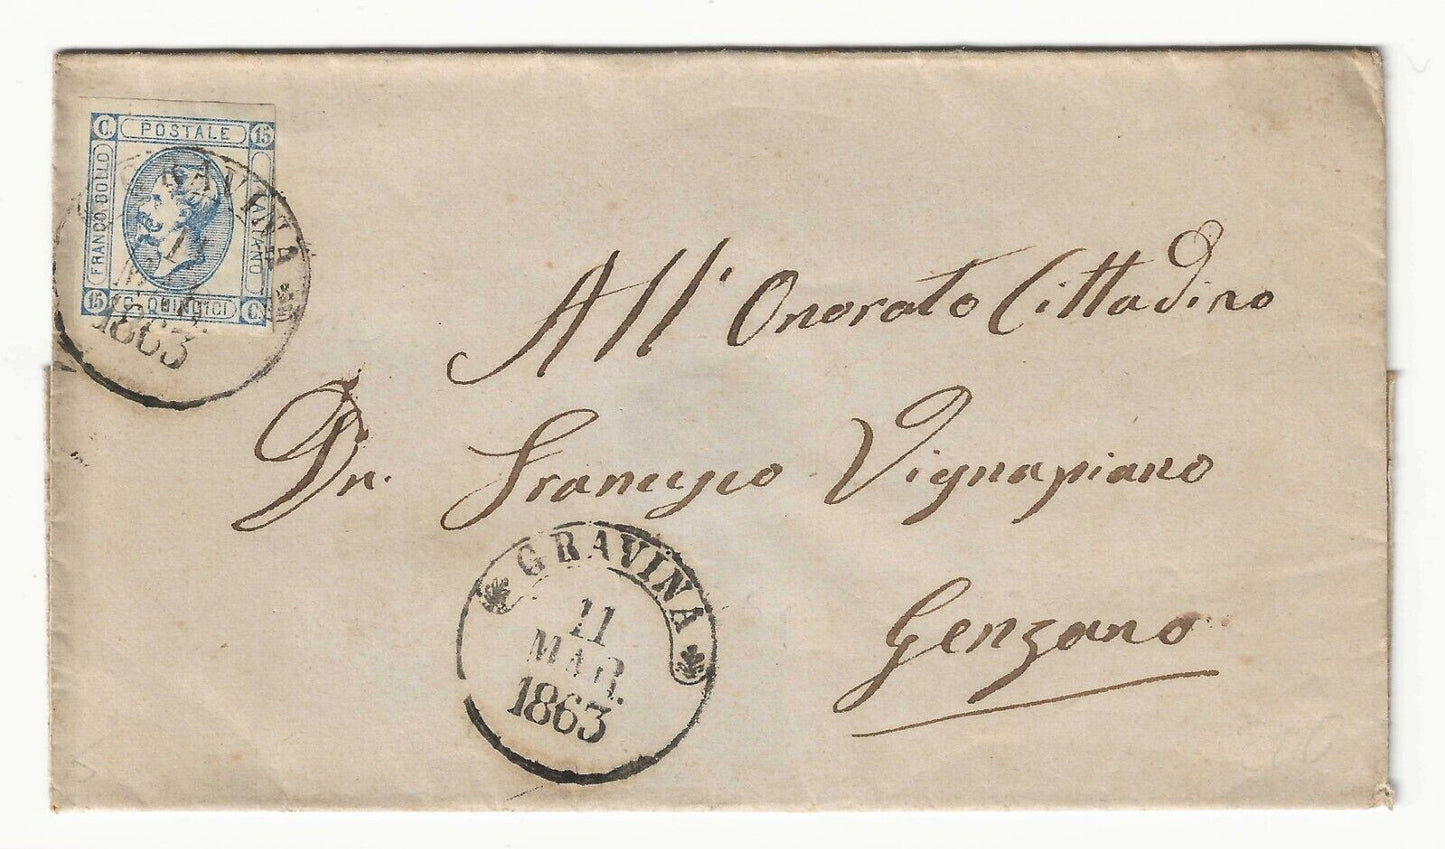 C. POSTALE 15
FRANCO BOLLO
ITALIANO
15 C. QUINDICI C.
GRAVINA
11
MAR.
1863
All' Onorato Cittadino
Dn. Francesco Vignapiano
Genzano
GRAVINA
11
MAR.
1863